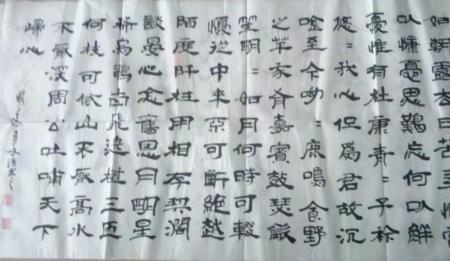 如朝露去日苦多慨當
以慷憂思難忘何以解
憂惟有杜康青〻子衿
悠〻我心但爲君故沉
唫至今呦〻鹿鳴食野
之苹我有嘉賓鼓瑟龡
笙明〻如月何時可輟
憂從中來不可斷絕越
陌度阡枉用相存契闊
談晏心念舊恩月明星
稀烏鵲南飛遶樹三匝
何枝可依山不厭高水
不厭深周公吐哺天下
歸心